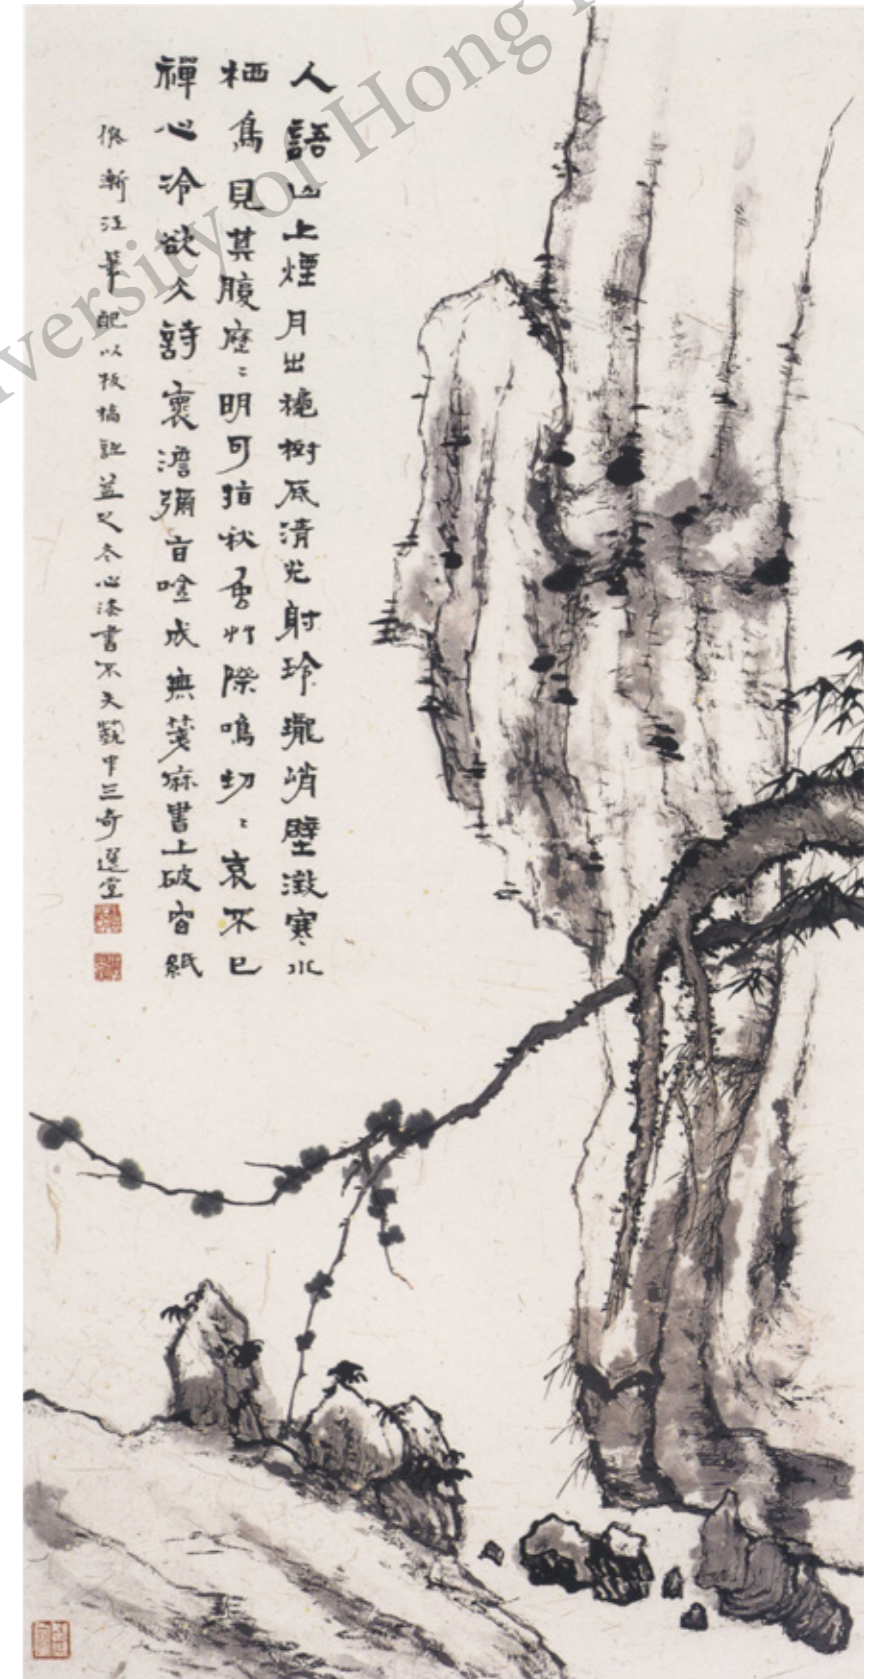 人語山上煙月出穐樹底清光射玲瓏峭壁澂寒水
栖鳥見其腹歷〻明可指秋虫艸際鳴切〻哀不已
禪心冷欲仌詩襄澹彌旨唫成無箋麻書上破窗紙
漸江筆配以板橋詩益之冬心漆書不失藝中三奇選堂
iversity of Hong